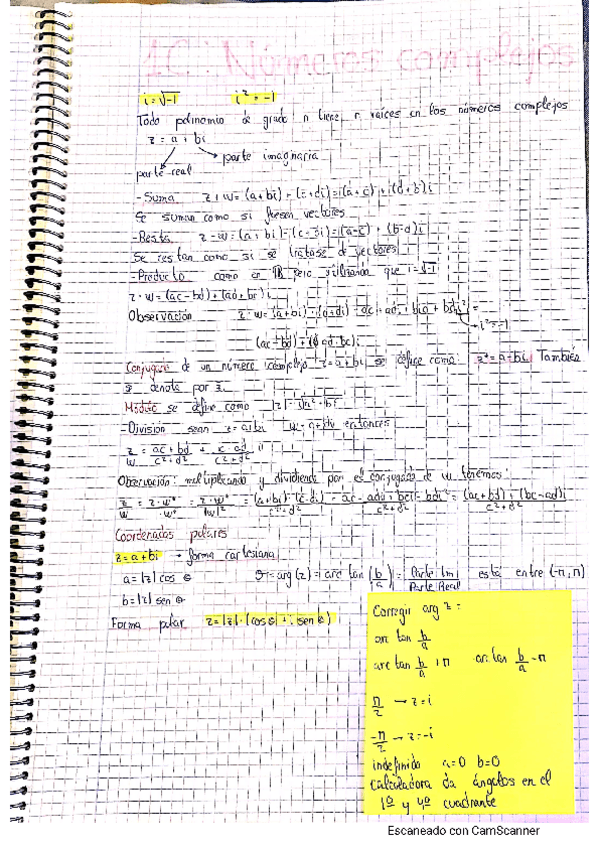 1C: Números complejos
i=√-1 i² = -1
Todo polinomio de grado n tiene n raíces en los números complejos
z = a + bi
parte imaginaria
parte real
- Suma z + w = (a+bi) + (c+di) = (a+c) + (d+b)i
Se suman como si fuesen vectores
- Resta z - w = (a+bi) - (c+di) = (a-c) + (b-d)i
Se restan como si se tratase de vectores
- Producto como en ℝ pero utilizando que i=√-1
z·w = (ac-bd) + (ad+bc)i
Observación z·w = (a+bi)·(c+di) = ac + adi + bci + bdi² =
i²=-1
(ac-bd) + (ad+bc)i
Conjugado de un número complejo z=a+bi se define como z*=a-bi. También
se denota por z̄.
Módulo se define como |z| = √a²+b²
- División sean z=a+bi w=c+di entonces
z/w = ac+bd/c²+d² + bc-ad/c²+d² i
Observación: multiplicando y dividiendo por el conjugado de w tenemos:
z/w = z·w*/w·w* = z·w*/|w|² = (a+bi)·(c-di)/c²+d² = ac-adi+bci-bdi²/c²+d² = (ac+bd)+(bc-ad)i/c²+d²
Coordenadas polares
z=a+bi → forma cartesiana
a=|z| cos θ θ=arg(z)=arc tan(b/a)= Parte Im/Parte Real está entre (-π,π)
b=|z| sen θ
Forma polar z=|z|·(cos θ + i sen θ)
Corregir arg z:
arc tan b/a
arc tan b/a +π arc tan b/a -π
π/2 → z=i
-π/2 → z=-i
indefinido a=0 b=0
calculadora da ángulos en el
1º y 4º cuadrante
Escaneado con CamScanner